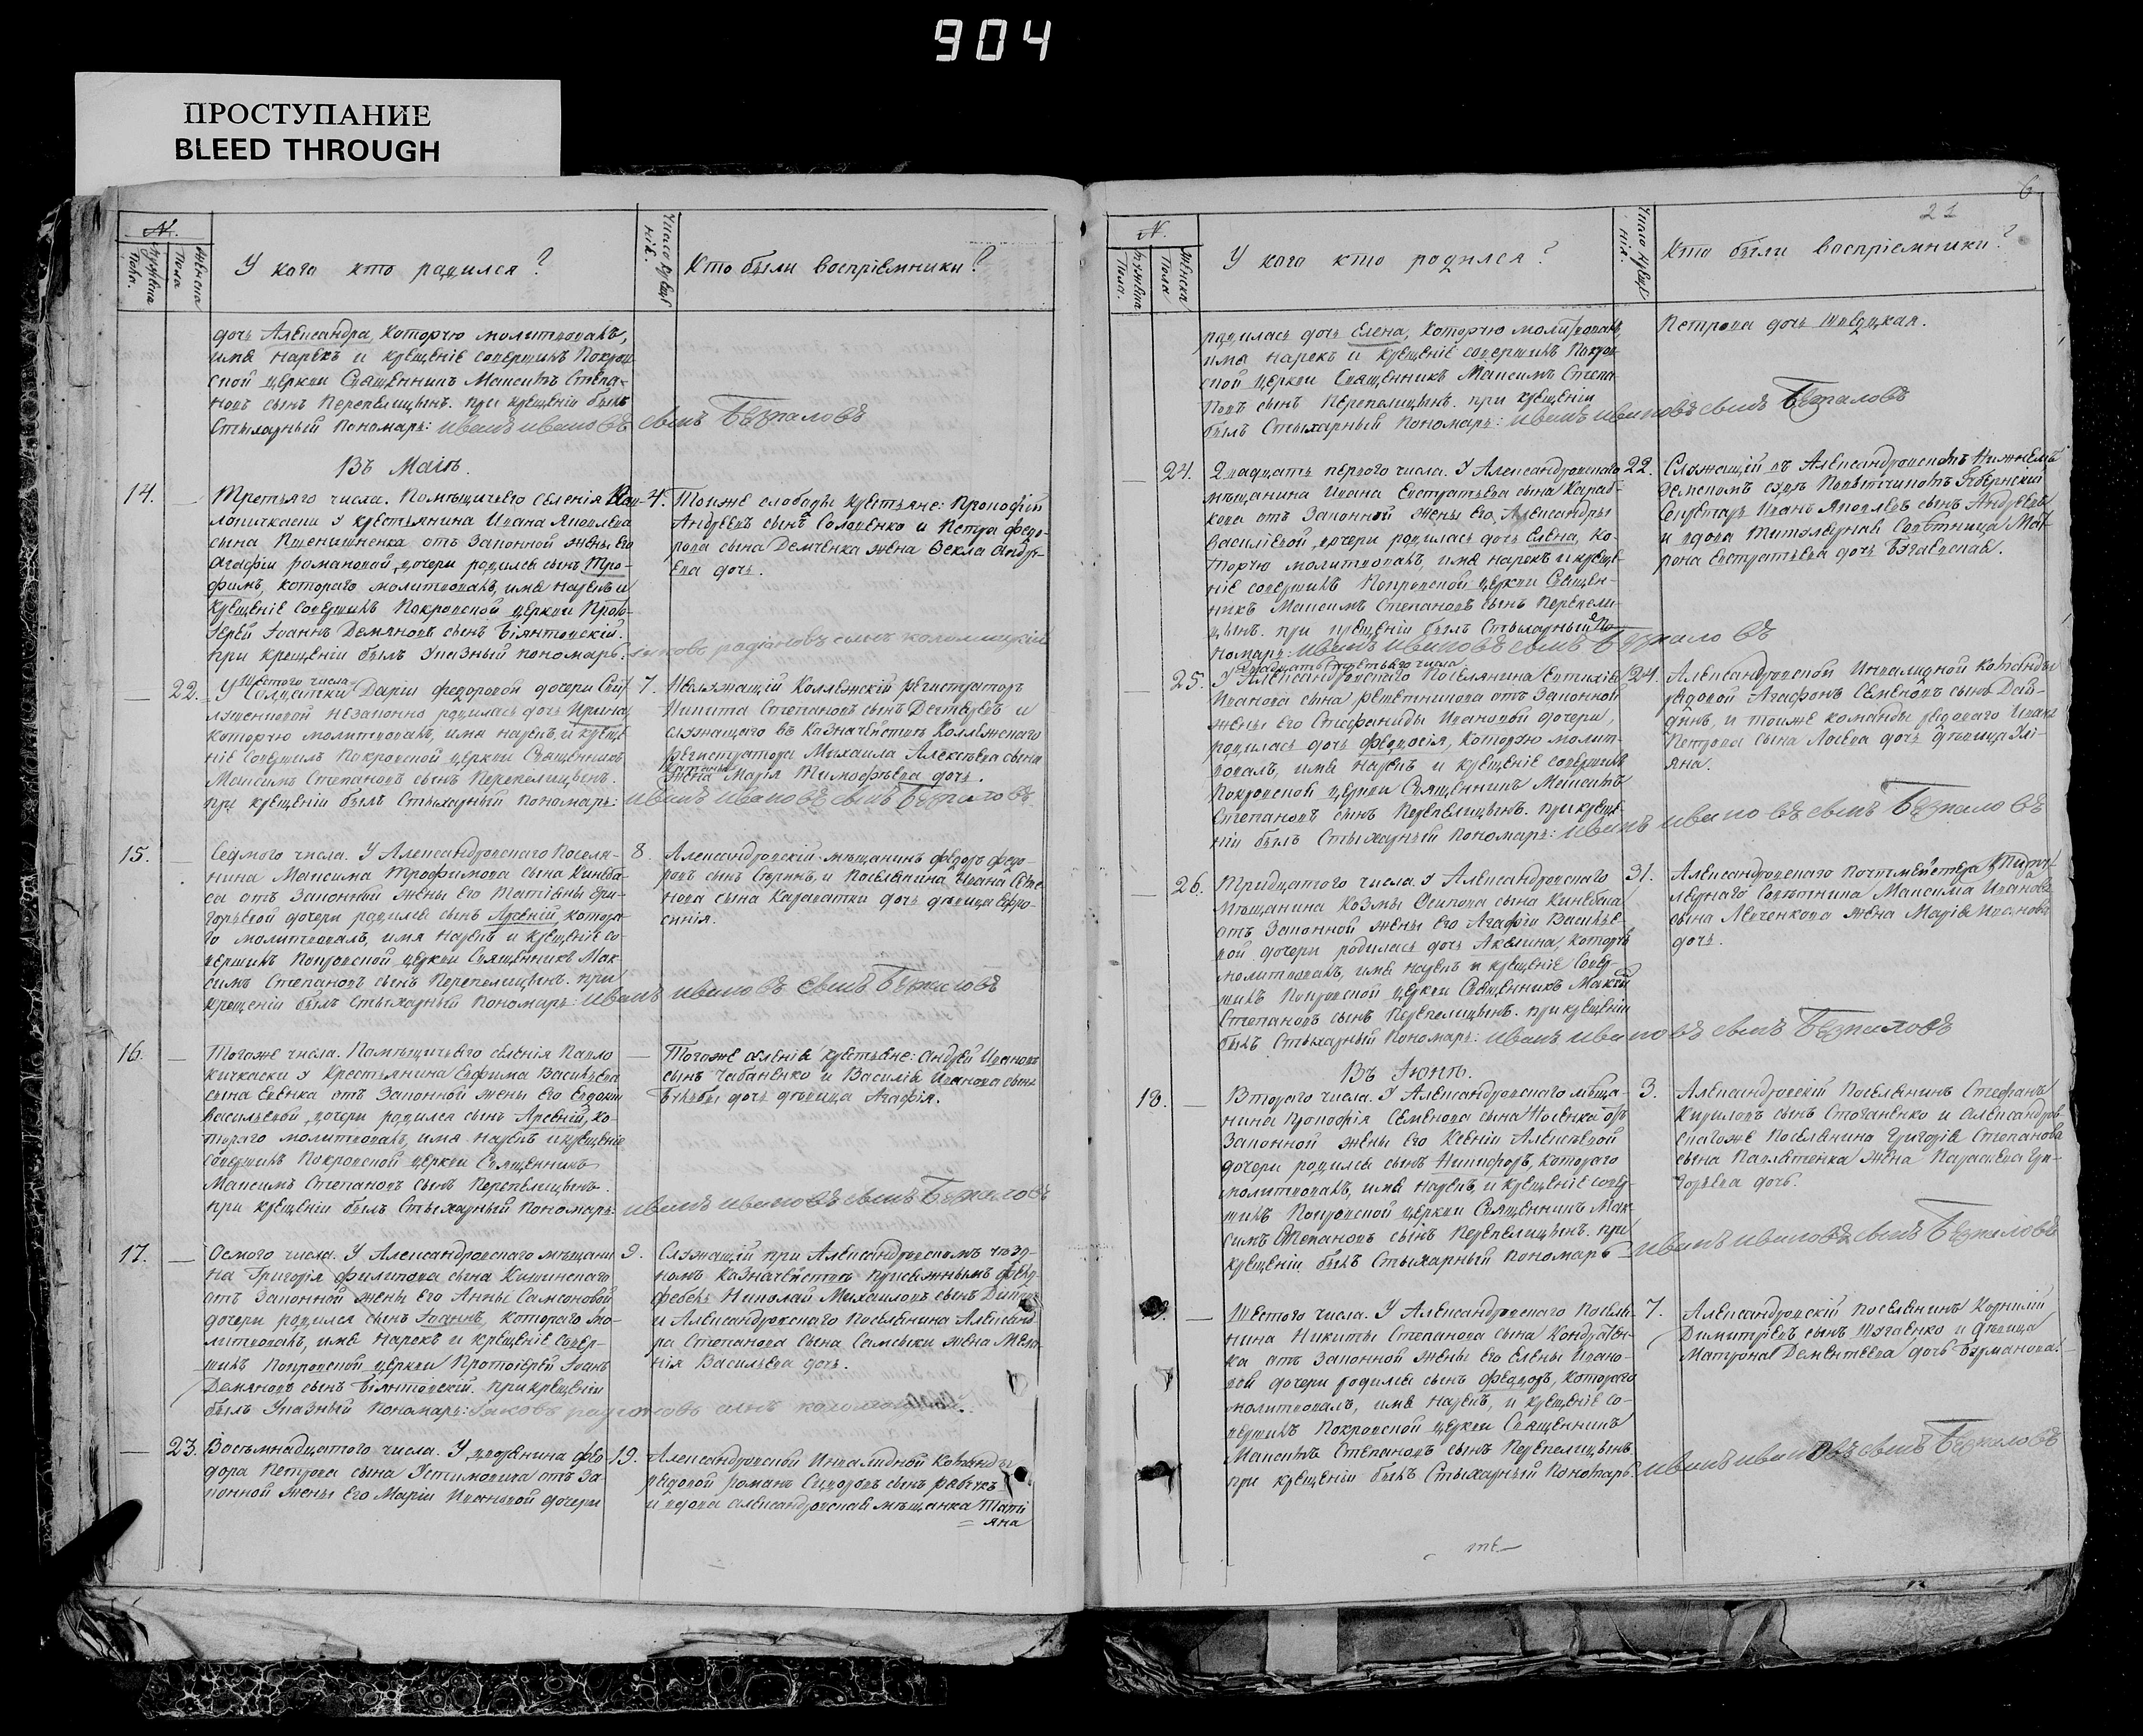 904
ПРОСТУПАНИЕ
BLEED THROUGH
N.
Мужеска пола.
Женска пола
У кого кто родился?
Число крещенія.
Кто были воспріемники?
дочь Александра, которую молитвовалъ,
имя нарекъ и крещеніе совершилъ Покров-
ской церкви Священникъ Максимъ Степа-
новъ сынъ Перепелицынъ. при крещеніи былъ
Стихарный пономарь: иванъ ивановъ сынъ Безпаловъ
Въ Маіѣ.
14.
Третьяго числа. Помѣщичьего селенія Пав-
локичкаски у крестьянина Ивана Яковлева
сына Пшенишненка отъ законной жены его
Агафіи Романовой дочери родился сынъ Тро-
фимъ, котораго молитвовалъ, имя нарекъ и
крещеніе совершилъ Покровской церкви Прото-
іерей Іоаннъ Демяновъ сынъ Біянтовскій.
при крещеніи былъ Указный пономарь:
4.
Тоиже слободы крестьяне: Прокофій
Андреевъ сынъ Солопенко и Петра Федо-
рова сына Демченка жена Ѳекла Андре-
ева дочь.
22.
Шестого числа
У Солдатки Даріи Федоровой дочери
незаконно родилась дочь Ирина,
которую молитвовалъ, имя нарекъ, и креще-
ніе совершилъ Покровской церкви Священникъ
Максимъ Степановъ сынъ Перепелицынъ.
при крещеніи былъ Стихарный пономарь: иванъ ивановъ сынъ Безпаловъ
7.
Неслужащій Коллежскій Регистраторъ
Никита Степановъ сынъ и
служащаго въ Казначействѣ Коллежскаго
Регистратора Михаила Алексѣева сына
жена Марія Тимофѣева дочь.
15.
Седмого числа. У Александровскаго поселя-
нина Максима Трофимова сына Кинеба-
са отъ законной жены его Татіяны Гри-
горьевой дочери родился сынъ Арсеній, котора-
го молитвовалъ, имя нарекъ и крещеніе со-
вершилъ Покровской церкви Священникъ Мак-
симъ Степановъ сынъ Перепелицынъ. при
крещеніи былъ Стихарный пономарь: иванъ ивановъ сынъ Безпаловъ
8.
Александровскій мѣщанинъ Федоръ Федо-
ровъ сынъ и поселянина Ивана Семе-
нова сына Карапатки дочь дѣвица Ефро-
синія.
16.
Тогоже числа. Помѣщичьего селенія Павло
кичкаски у крестьянина Ефима Васильева
сына отъ законной жены его Евдокіи
Васильевой дочери родился сынъ Арсеній, ко-
тораго молитвовалъ, имя нарекъ и крещеніе
совершилъ Покровской церкви Священникъ
Максимъ Степановъ сынъ Перепелицынъ.
при крещеніи былъ Стихарный пономарь: иванъ ивановъ сынъ Безпаловъ
Тогоже селенія крестьяне: Андрей Ивановъ
сынъ Чабаненко и Василія Иванова сына
дочь дѣвица Агафія.
17.
Осмого числа. У Александровскаго мѣщани
на Григорія Филипова сына Кишинскаго
отъ законной жены его Анны Самсоновой
дочери родился сынъ Іоаннъ, котораго мо-
литвовалъ, имя нарекъ и крещеніе совер-
шилъ Покровской церкви Протоіерей Іоанъ
Демяновъ сынъ Біянтовскій. при крещеніи
былъ Указный пономарь:
9.
Служащій при Александровскомъ уѣзд-
номъ Казначействѣ присяжнымъ Фельд-
фебель Николай Михаиловъ сынъ
и Александровскаго поселянина Александ-
ра Степанова сына Самсыки жена Мела-
нія Васильева дочь.
23.
Восьмнадцатого числа. У дворянина Фео-
дора Петрова сына Устимовича отъ за-
конной жены его Маріи Ивановой дочери
19.
Александровской Инвалидной команды
рядовой Романъ Сидоровъ сынъ
и вдова Александровская мѣщанка Тати
яна
6
21
N.
Мужеска пола.
Женска пола
У кого кто родился?
Число крещенія.
Кто были воспріемники?
родилась дочь Елена, которую молитвовалъ
имя нарекъ и крещеніе совершилъ Покров-
ской церкви Священникъ Максимъ Степа-
новъ сынъ Перепелицынъ. при крещеніи
былъ Стихарный пономарь: иванъ ивановъ сынъ Безпаловъ
Петрова дочь Шведцкая.
24.
Двадцать перваго числа. У Александровскаго
мѣщанина Ивана Евстратьева сына Караб-
кова отъ законной жены его Александры
Василіевой дочери родилась дочь Елена, ко-
торую молитвовалъ, имя нарекъ и креще-
ніе совершилъ Покровской церкви Священ-
никъ Максимъ Степановъ сынъ Перепели-
цынъ. при крещеніи былъ Стихарный по-
номарь: иванъ ивановъ сынъ Безпаловъ
22.
Служащій въ Александровскомъ Нижнемъ
Земскомъ судѣ Повытчикомъ Губернскій
Секретарь Иванъ Яковлевъ сынъ Андреевъ
и вдова Титулярная Совѣтница Мат-
рона Евстратьева дочь Бугаевская.
25.
Двадцать третьяго числа
У Александровскаго поселянина Евтихія
Иванова сына Решетникова отъ законной
жены его Стефаниды Ивановой дочери,
родилась дочь Феодосія, которую молит-
вовалъ, имя нарекъ и крещеніе совершилъ
Покровской церкви Священникъ Максимъ
Степановъ сынъ Перепелицынъ. при креще-
ніи былъ Стихарный пономарь: иванъ ивановъ сынъ Безпаловъ
24.
Александровской Инвалидной команды
рядовой Агафонъ Семеновъ сынъ
и тоиже команды рядоваго Ивана
Петрова сына Лосева дочь дѣвица Улі-
яна.
26.
Тридцатого числа. У Александровскаго
мѣщанина Козмы Осипова сына Кинебаса
отъ законной жены его Агафіи Василье-
вой дочери родилась дочь Акелина, которую
молитвовалъ, имя нарекъ и крещеніе совер-
шилъ Покровской церкви Священникъ Максимъ
Степановъ сынъ Перепелицынъ. при крещеніи
былъ Стихарный пономарь: иванъ ивановъ сынъ Безпаловъ
31.
Александровскаго Почтмейстера Титу-
лярнаго Совѣтника Максима Иванова
сына Левченкова жена Марія Иванова
дочь.
Въ Іюнѣ.
18.
Втораго числа. У Александровскаго мѣща-
нина Прокофія Семенова сына Носенка отъ
законной жены его Ксеніи Алексѣевой
дочери родился сынъ Никифоръ, котораго
молитвовалъ, имя нарекъ, и крещеніе совер-
шилъ Покровской церкви Священникъ Мак-
симъ Степановъ сынъ Перепелицынъ. при
крещеніи былъ Стихарный пономарь иванъ ивановъ сынъ Безпаловъ
3.
Александровскій поселянинъ Стефанъ
Кириловъ сынъ Стоганенко и Александров-
скагоже поселянина Григорія Степанова
сына Павлятенка жена Параскева Гри-
горьева дочь.
Шестого числа. У Александровскаго поселя-
нина Никиты Степанова сына Кондратен-
ка отъ законной жены его Елены Ивано-
вой дочери родился сынъ Феодоръ, котораго
молитвовалъ, имя нарекъ, и крещеніе со-
вершилъ Покровской церкви Священникъ
Максимъ Степановъ сынъ Перепелицынъ
при крещеніи былъ Стихарный пономарь иванъ ивановъ сынъ Безпаловъ
7.
Александровскій поселянинъ Корнилій
Димитріевъ сынъ Шугаенко и дѣвица
Матрона Дементьева дочь Бурманова.